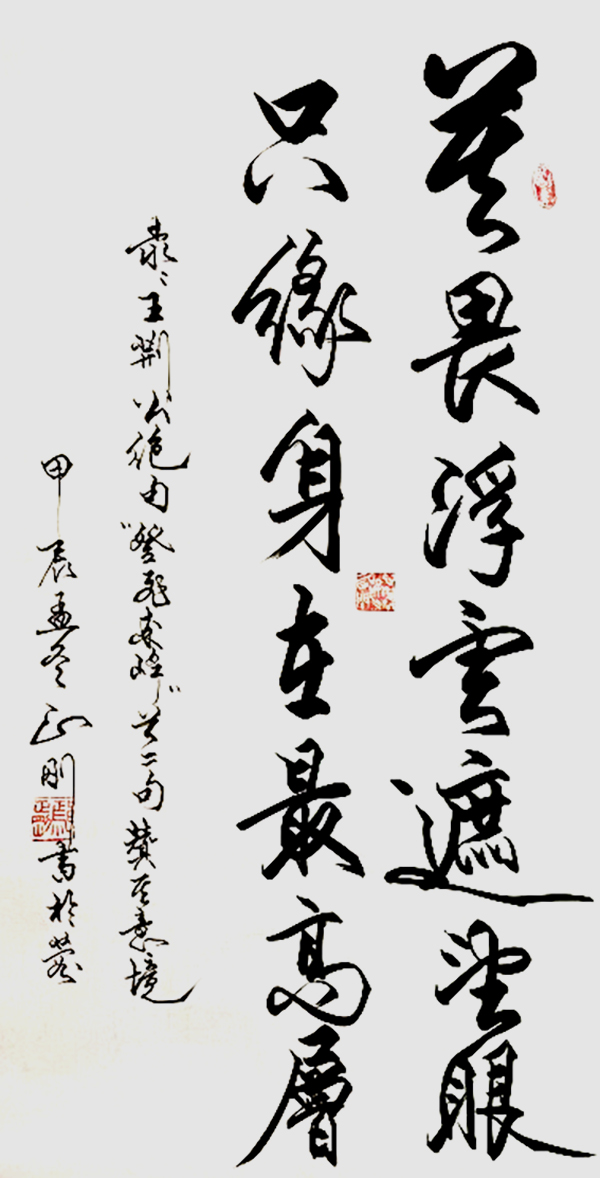 莫畏浮雲遮望眼
只緣身在最高層
王荆公绝句“登飛來峰”二句贊其意境
甲辰孟冬正刚書於